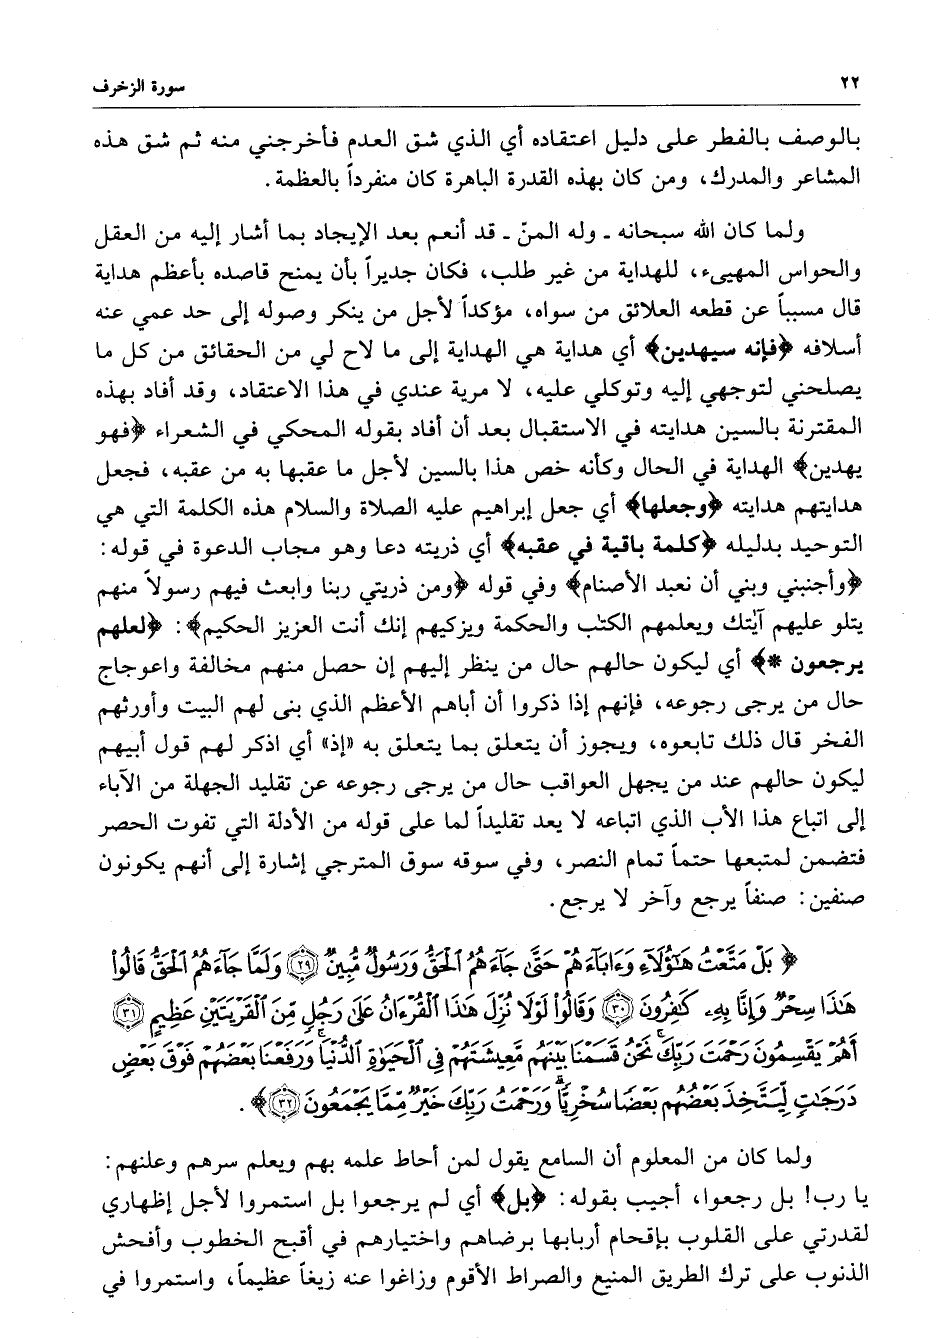 ٢٢ سورة الزخرف
بالوصف بالفطر على دليل اعتقاده أي الذي شق العدم فأخرجني منه ثم شق هذه
المشاعر والمدرك، ومن كان بهذه القدرة الباهرة كان منفرداً بالعظمة.
ولما كان الله سبحانه ـ وله المنّ ـ قد أنعم بعد الإيجاد بما أشار إليه من العقل
والحواس المهيىء، للهداية من غير طلب، فكان جديراً بأن يمنح قاصده بأعظم هداية
قال مسبباً عن قطعه العلائق من سواه، مؤكداً لأجل من ينكر وصوله إلى حد عمي عنه
أسلافه ﴿فإنه سيهدين﴾ أي هداية هي الهداية إلى ما لاح لي من الحقائق من كل ما
يصلحني لتوجهي إليه وتوكلي عليه، لا مرية عندي في هذا الاعتقاد، وقد أفاد بهذه
المقترنة بالسين هدايته في الاستقبال بعد أن أفاد بقوله المحكي في الشعراء ﴿فهو
يهدين﴾ الهداية في الحال وكأنه خص هذا بالسين لأجل ما عقبها به من عقبه، فجعل
هدايتهم هدايته ﴿وجعلها﴾ أي جعل إبراهيم عليه الصلاة والسلام هذه الكلمة التي هي
التوحيد بدليله ﴿كلمة باقية في عقبه﴾ أي ذريته دعا وهو مجاب الدعوة في قوله:
﴿وأجنبني وبني أن نعبد الأصنام﴾ وفي قوله ﴿ومن ذريتي ربنا وابعث فيهم رسولاً منهم
يتلو عليهم آيٰتك ويعلمهم الكتٰب والحكمة ويزكيهم إنك أنت العزيز الحكيم﴾: ﴿لعلهم
يرجعون *﴾ أي ليكون حالهم حال من ينظر إليهم إن حصل منهم مخالفة واعوجاج
حال من يرجى رجوعه، فإنهم إذا ذكروا أن أباهم الأعظم الذي بنى لهم البيت وأورثهم
الفخر قال ذلك تابعوه، ويجوز أن يتعلق بما يتعلق به «إذ» أي اذكر لهم قول أبيهم
ليكون حالهم عند من يجهل العواقب حال من يرجى رجوعه عن تقليد الجهلة من الآباء
إلى اتباع هذا الأب الذي اتباعه لا يعد تقليداً لما على قوله من الأدلة التي تفوت الحصر
فتضمن لمتبعها حتماً تمام النصر، وفي سوقه سوق المترجي إشارة إلى أنهم يكونون
صنفين: صنفاً يرجع وآخر لا يرجع.
﴿بَلْ مَتَّعْتُ هَٰٓؤُلَآءِ وَءَابَآءَهُمْ حَتَّىٰ جَآءَهُمُ ٱلْحَقُّ وَرَسُولٌ مُّبِينٌ ﴿٢٩﴾ وَلَمَّا جَآءَهُمُ ٱلْحَقُّ قَالُوا۟
هَٰذَا سِحْرٌ وَإِنَّا بِهِۦ كَٰفِرُونَ ﴿٣٠﴾ وَقَالُوا۟ لَوْلَا نُزِّلَ هَٰذَا ٱلْقُرْءَانُ عَلَىٰ رَجُلٍ مِّنَ ٱلْقَرْيَتَيْنِ عَظِيمٍ ﴿٣١﴾
أَهُمْ يَقْسِمُونَ رَحْمَتَ رَبِّكَ ۚ نَحْنُ قَسَمْنَا بَيْنَهُم مَّعِيشَتَهُمْ فِى ٱلْحَيَوٰةِ ٱلدُّنْيَا ۚ وَرَفَعْنَا بَعْضَهُمْ فَوْقَ بَعْضٍ
دَرَجَٰتٍ لِّيَتَّخِذَ بَعْضُهُم بَعْضًا سُخْرِيًّا ۗ وَرَحْمَتُ رَبِّكَ خَيْرٌ مِّمَّا يَجْمَعُونَ ﴿٣٢﴾﴾.
ولما كان من المعلوم أن السامع يقول لمن أحاط علمه بهم ويعلم سرهم وعلنهم:
يا رب! بل رجعوا، أجيب بقوله: ﴿بل﴾ أي لم يرجعوا بل استمروا لأجل إظهاري
لقدرتي على القلوب بإقحام أربابها برضاهم واختيارهم في أقبح الخطوب وأفحش
الذنوب على ترك الطريق المنيع والصراط الأقوم وزاغوا عنه زيغاً عظيماً، واستمروا في